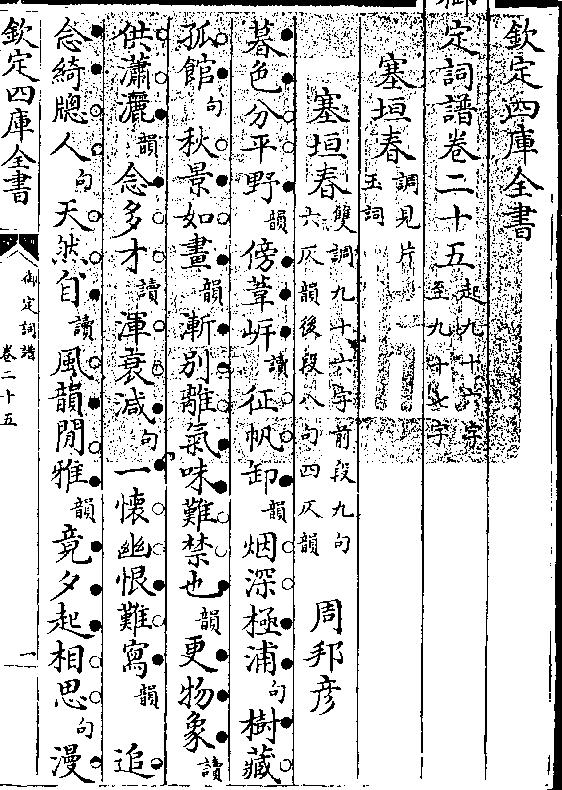 欽定四庫全書
御定詞譜卷二十五起九十六字至九十七字
塞垣春調見片玉詞
塞垣春雙調九十六字前段九句六仄韻後段八句四仄韻 周邦彥
暮色分平野韻傍葦岸讀征帆卸韻烟深極浦句樹藏
孤館句秋景如畫韻漸別離氣味難禁也韻更物象讀
供瀟灑韻念多才讀渾衰減句一懷幽恨難寫韻 追
念綺牕人句天然自讀風韻閒雅韻竟夕起相思句漫
欽定四庫全書
御定詞譜
卷二十五
一